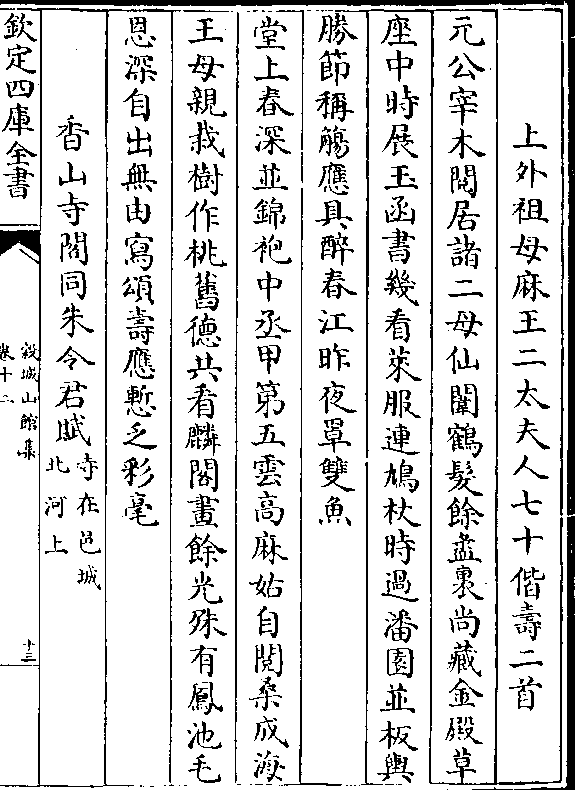 上外祖母麻王二太夫人七十偕壽二首
元公宰木閟居諸二母仙闈鶴髮餘盝裏尚藏金殿草
座中時展玉函書幾看萊服連鳩杖時過潘園並板輿
勝節稱觴應具醉春江昨夜罩雙魚
堂上春深並錦袍中丞甲第五雲高麻姑自閱桑成海
王母親栽樹作桃舊德共看麟閣畫餘光殊有鳳池毛
恩深自出無由寫頌壽應慙乏彩毫
香山寺閣同朱令君賦寺在邑城北河上
欽定四庫全書
穀城山館集
卷十二
十三